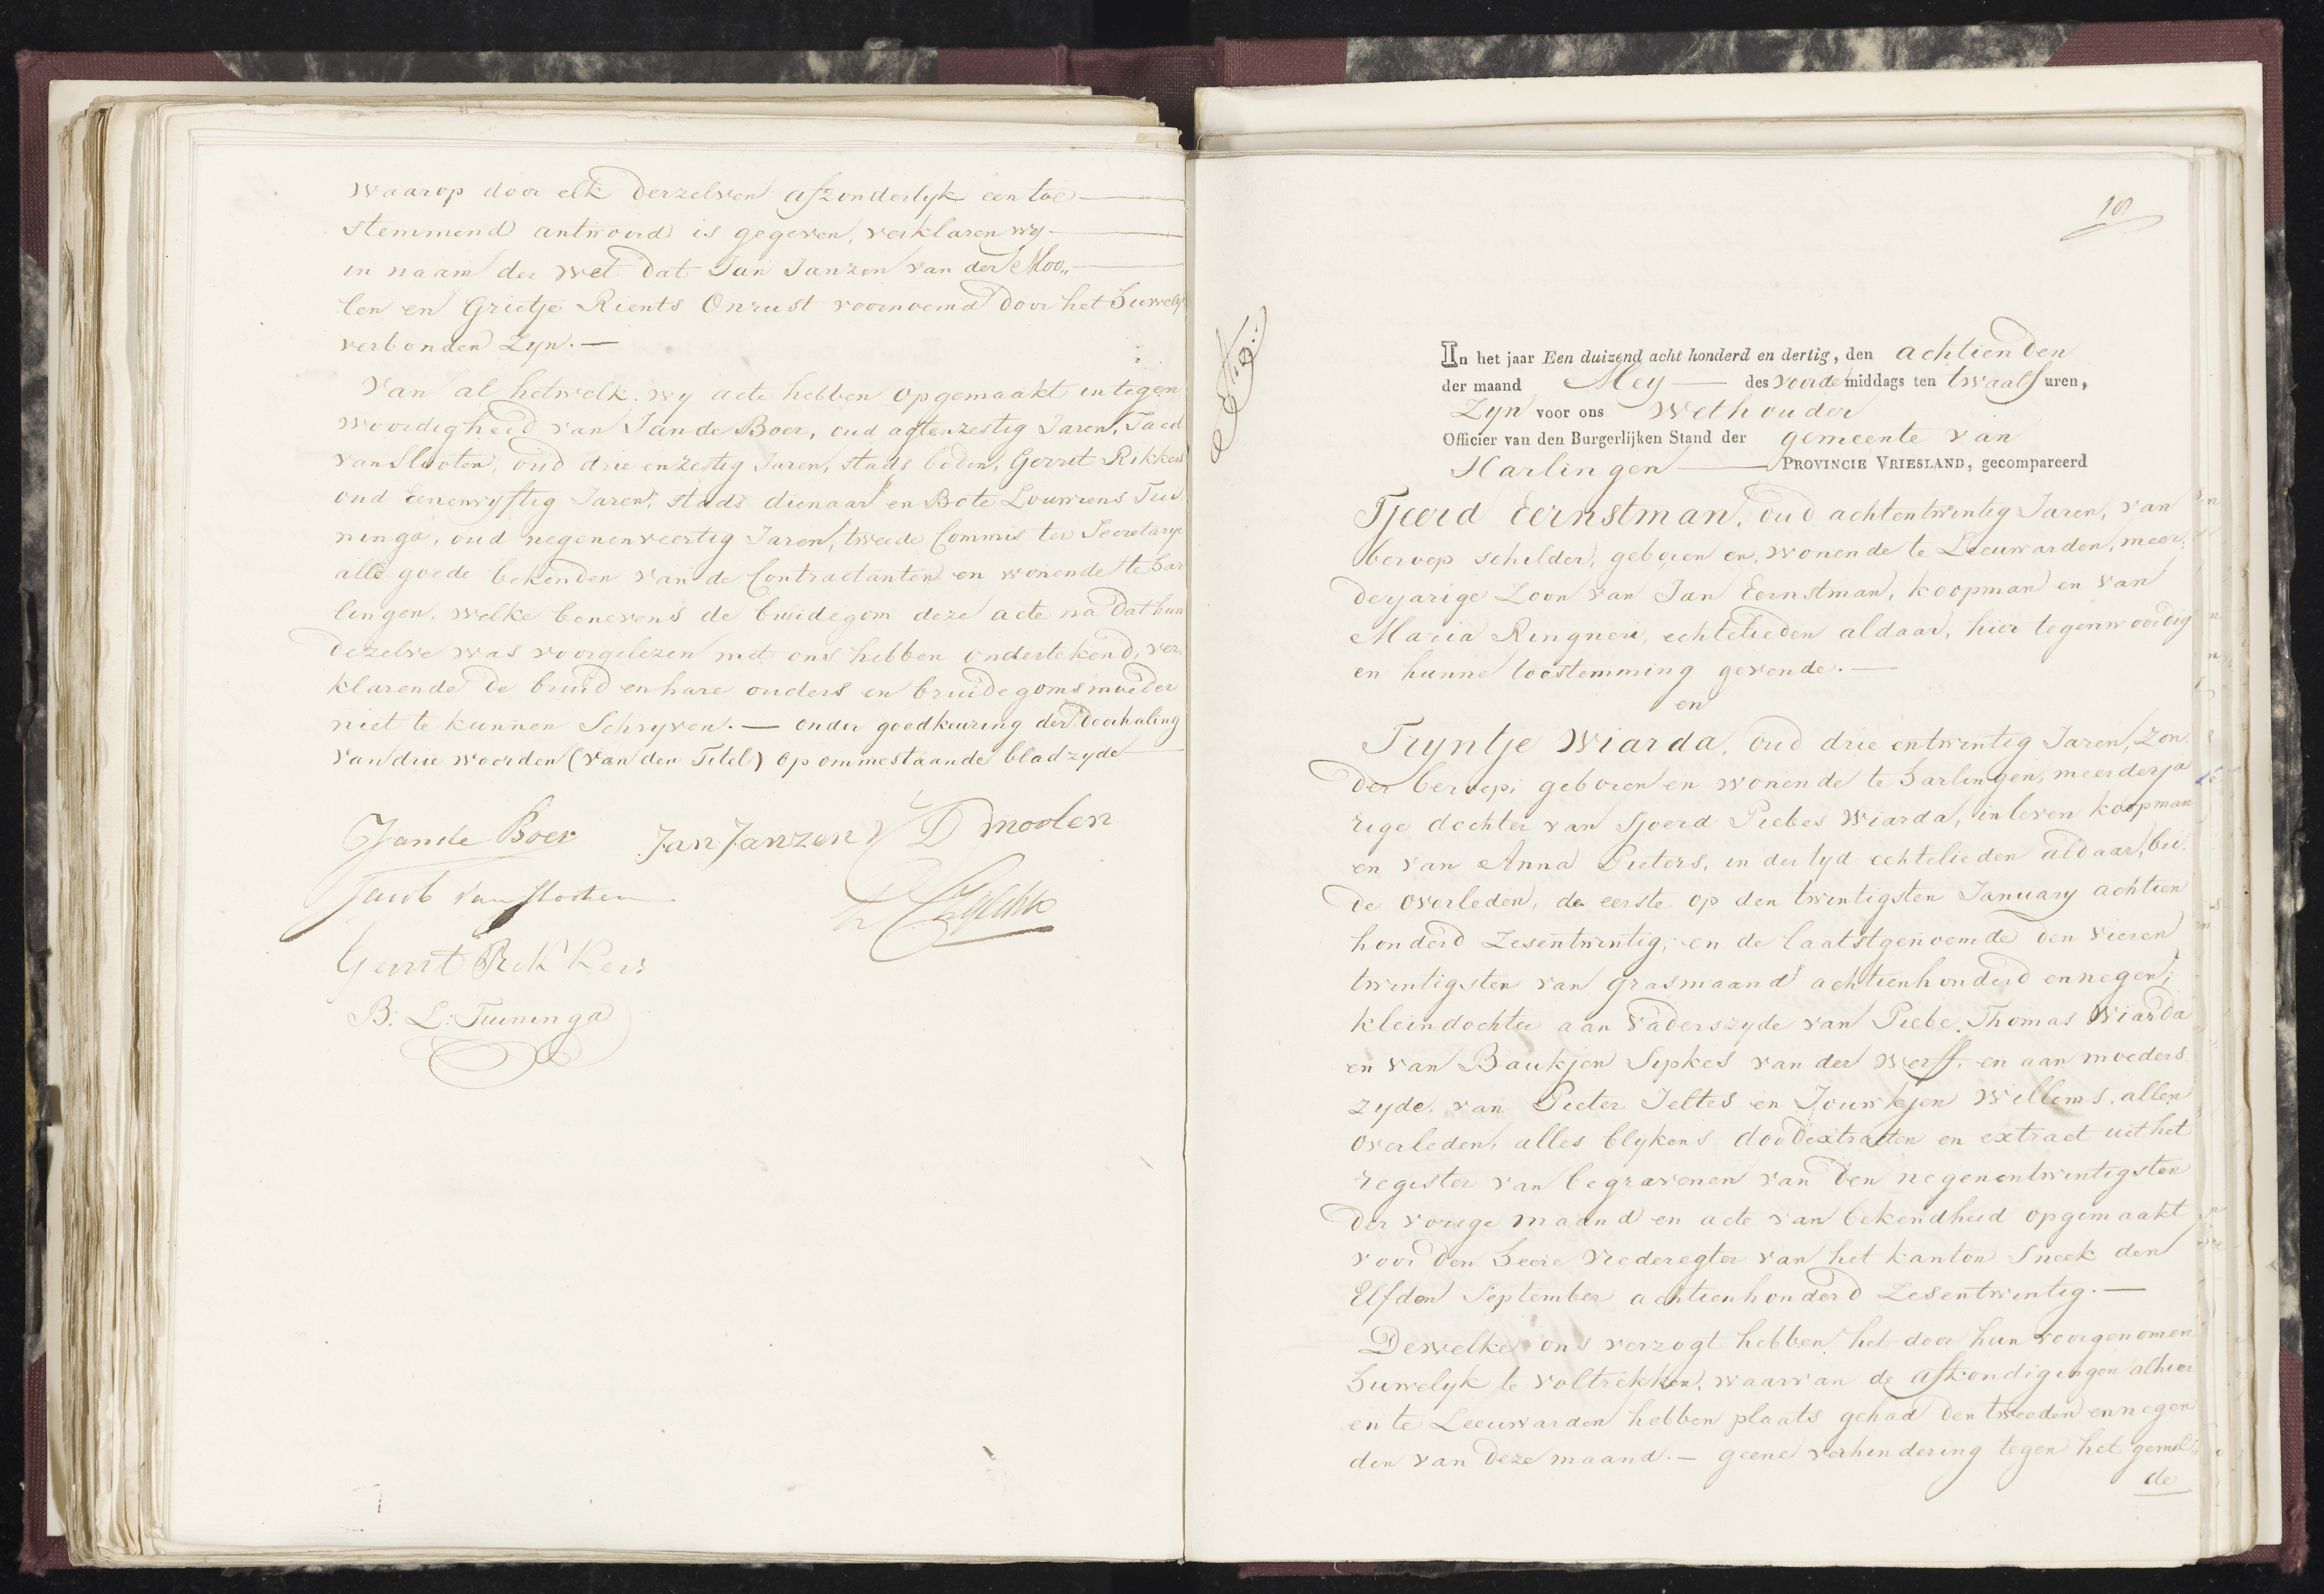 waarop door elk derzelven afzonderlyk een toe
stemmend antwoord is gegeven, verklaren wy
in naam der wet dat Jan Janzen van der Moo„
len en Grietje Rients Onrust voornoemd door het Huwelyk
verbonden Zyn. —
Van al hetwelk wy acte hebben opgemaakt in tegen
woordigheid van Jan de Boer, oud agtenzestig Jaren, Jacob
van Slooten, oud drie en zestig Jaren, stads boden, Gerrit Rikkers
oud Eenenvyftig Jaren, stads dienaar en Bote Louwrens Tui
ninga, oud negenenveertig Jaren, tweede Commis ter Secretarye
alle goede bekenden van de Contractanten en wonende te Har
lingen, welke benevens de bruidegom deze acte na dat hun
dezelve was voorgelezen met ons hebben ondertekend, ver,
klarende de bruid en hare ouders en bruidegoms moeder
niet te kunnen Schryven. — onder goedkeuring der doorhaling
van drie woorden (van den Titel) op ommestaande bladzyde
Jan de Boer Jan Janzen V D moolen
Jacob van Slooten
Gerrit Rikkers
B: L: Tuininga
18
In het jaar Een duizend acht honderd en dertig, den achtienden
der maand Mey — des voorde middags ten twaalf uren,
Zyn voor ons Wethouder
Officier van den Burgerlijken Stand der gemeente van
Harlingen — PROVINCIE VRIESLAND, gecompareerd
Tjeerd Eernstman, oud achtentwintig Jaren, van
beroep schilder, geboren en wonende te Leeuwarden, meer
derjarige Zoon van Jan Eernstman, koopman en van
Maria Ringneri, echtelieden aldaar, hier tegenwoordig
en hunne toestemming gevende. —
en
Tryntje Wiarda, oud drie entwintig Jaren, Zon
der beroep, geboren en wonende te Harlingen, meerderja
rige dochter van Sjoerd Piebes Wiarda, in leven koopman
en van Anna Pieters, in der tyd echtelieden aldaar, bei
de overleden, de eerste op den twintigsten January achtien
honderd Zesentwintig, en de laatstgenoemde den vieren
twintigsten van grasmaand achtienhonderd en negen;
kleindochter aan vaderszyde van Piebe Thomas Wiarda
en van Baukjen Sipkes van der Werff, en aan moeders
zyde, van Pieter Jeltes en Jouwkjen Willems, allen
overleden, alles blykens doodextracten en extract uit het
register van begravenen van den negenentwintigsten
der vorige maand en acte van bekendheid opgemaakt
voor den Heere Vrederegter van het kanton Sneek den
Elfden September achtienhonderd Zesentwintig. —
Dewelke ons verzogt hebben het door hun voorgenomen
Huwelyk te voltrekken, waarvan de afkondigingen alhier
en te Leeuwarden hebben plaats gehad den tweeden en negen
den van deze maand. — geene verhindering tegen het gemel„
de